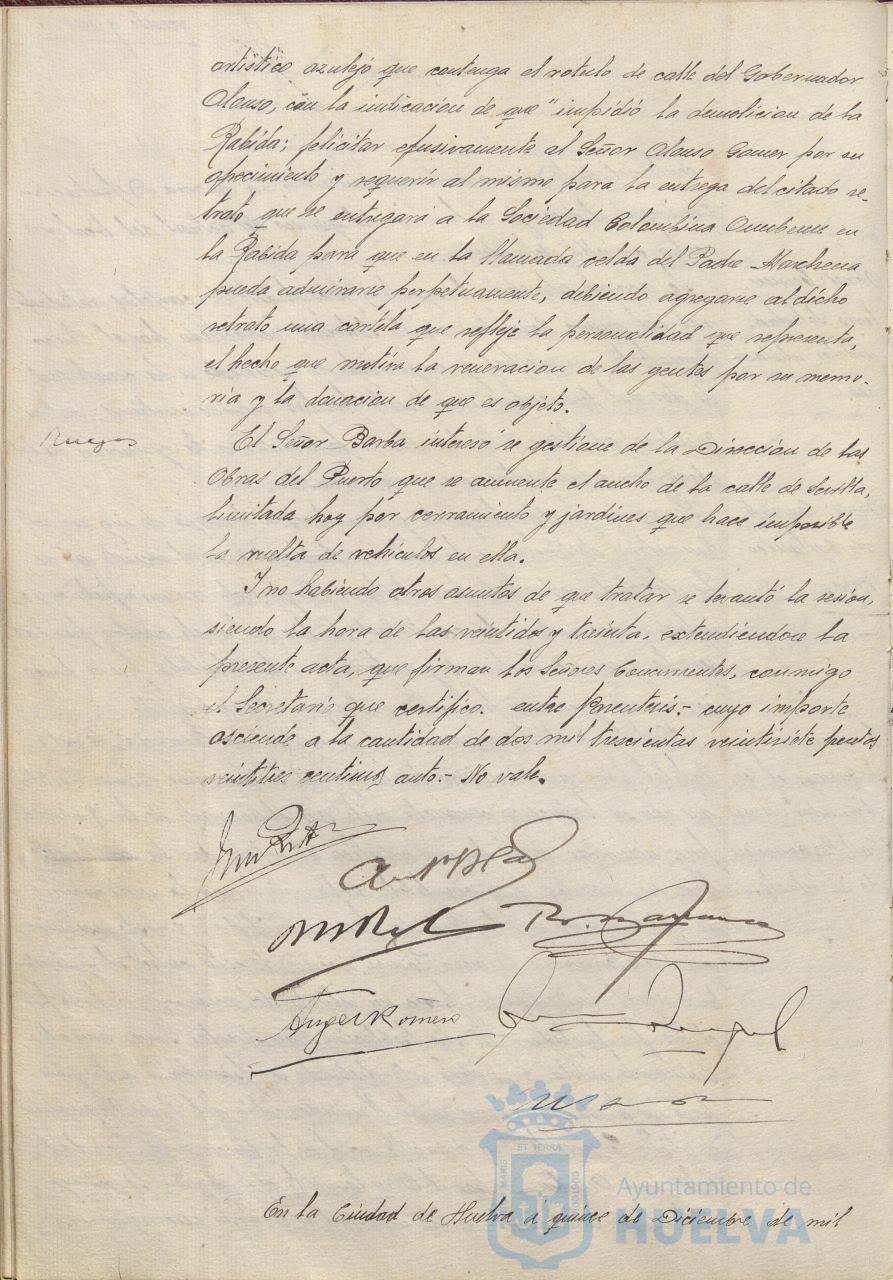 artistico azulejo que contenga el rotulo de calle del Gobernador
Alonso, con la indicacion de que "impidió la demolicion de la
Rabida; felicitar efusivamente al Señor Alonso Gomez por su
ofrecimiento y requerir al mismo para la entrega del citado re-
trato que se entregara a la Sociedad Colombina Onubense en
la Rabida para que en la llamada celda del Padre Marchena
pueda admirarse perpetuamente, debiendo agregarse al dicho
retrato una cartela que refleje la personalidad que representa,
el hecho que motiva la veneracion de las gentes por su memo-
ria y la donacion de que es objeto.
Ruegos
El Señor Barba interesó se gestione de la Dirección de las
Obras del Puerto que se aumente el ancho de la calle de Sevilla,
limitada hoy por cerramiento y jardines que hace imposible
la vuelta de vehículos en ella.
Y no habiendo otros asuntos de que tratar se levantó la sesión,
siendo la hora de las veintidos y treinta, extendiendose la
presente acta, que firman los Señores Concurrentes, conmigo
el Secretario que certifico. entre parentesis.- cuyo importe
asciende a la cantidad de dos mil trescientas veintisiete pesetas
veintitres centimos auto.- No vale.
Angel Romero
ET TERRA
Ayuntamiento de
HUELVA
En la Ciudad de Huelva a quince de Diciembre de mil